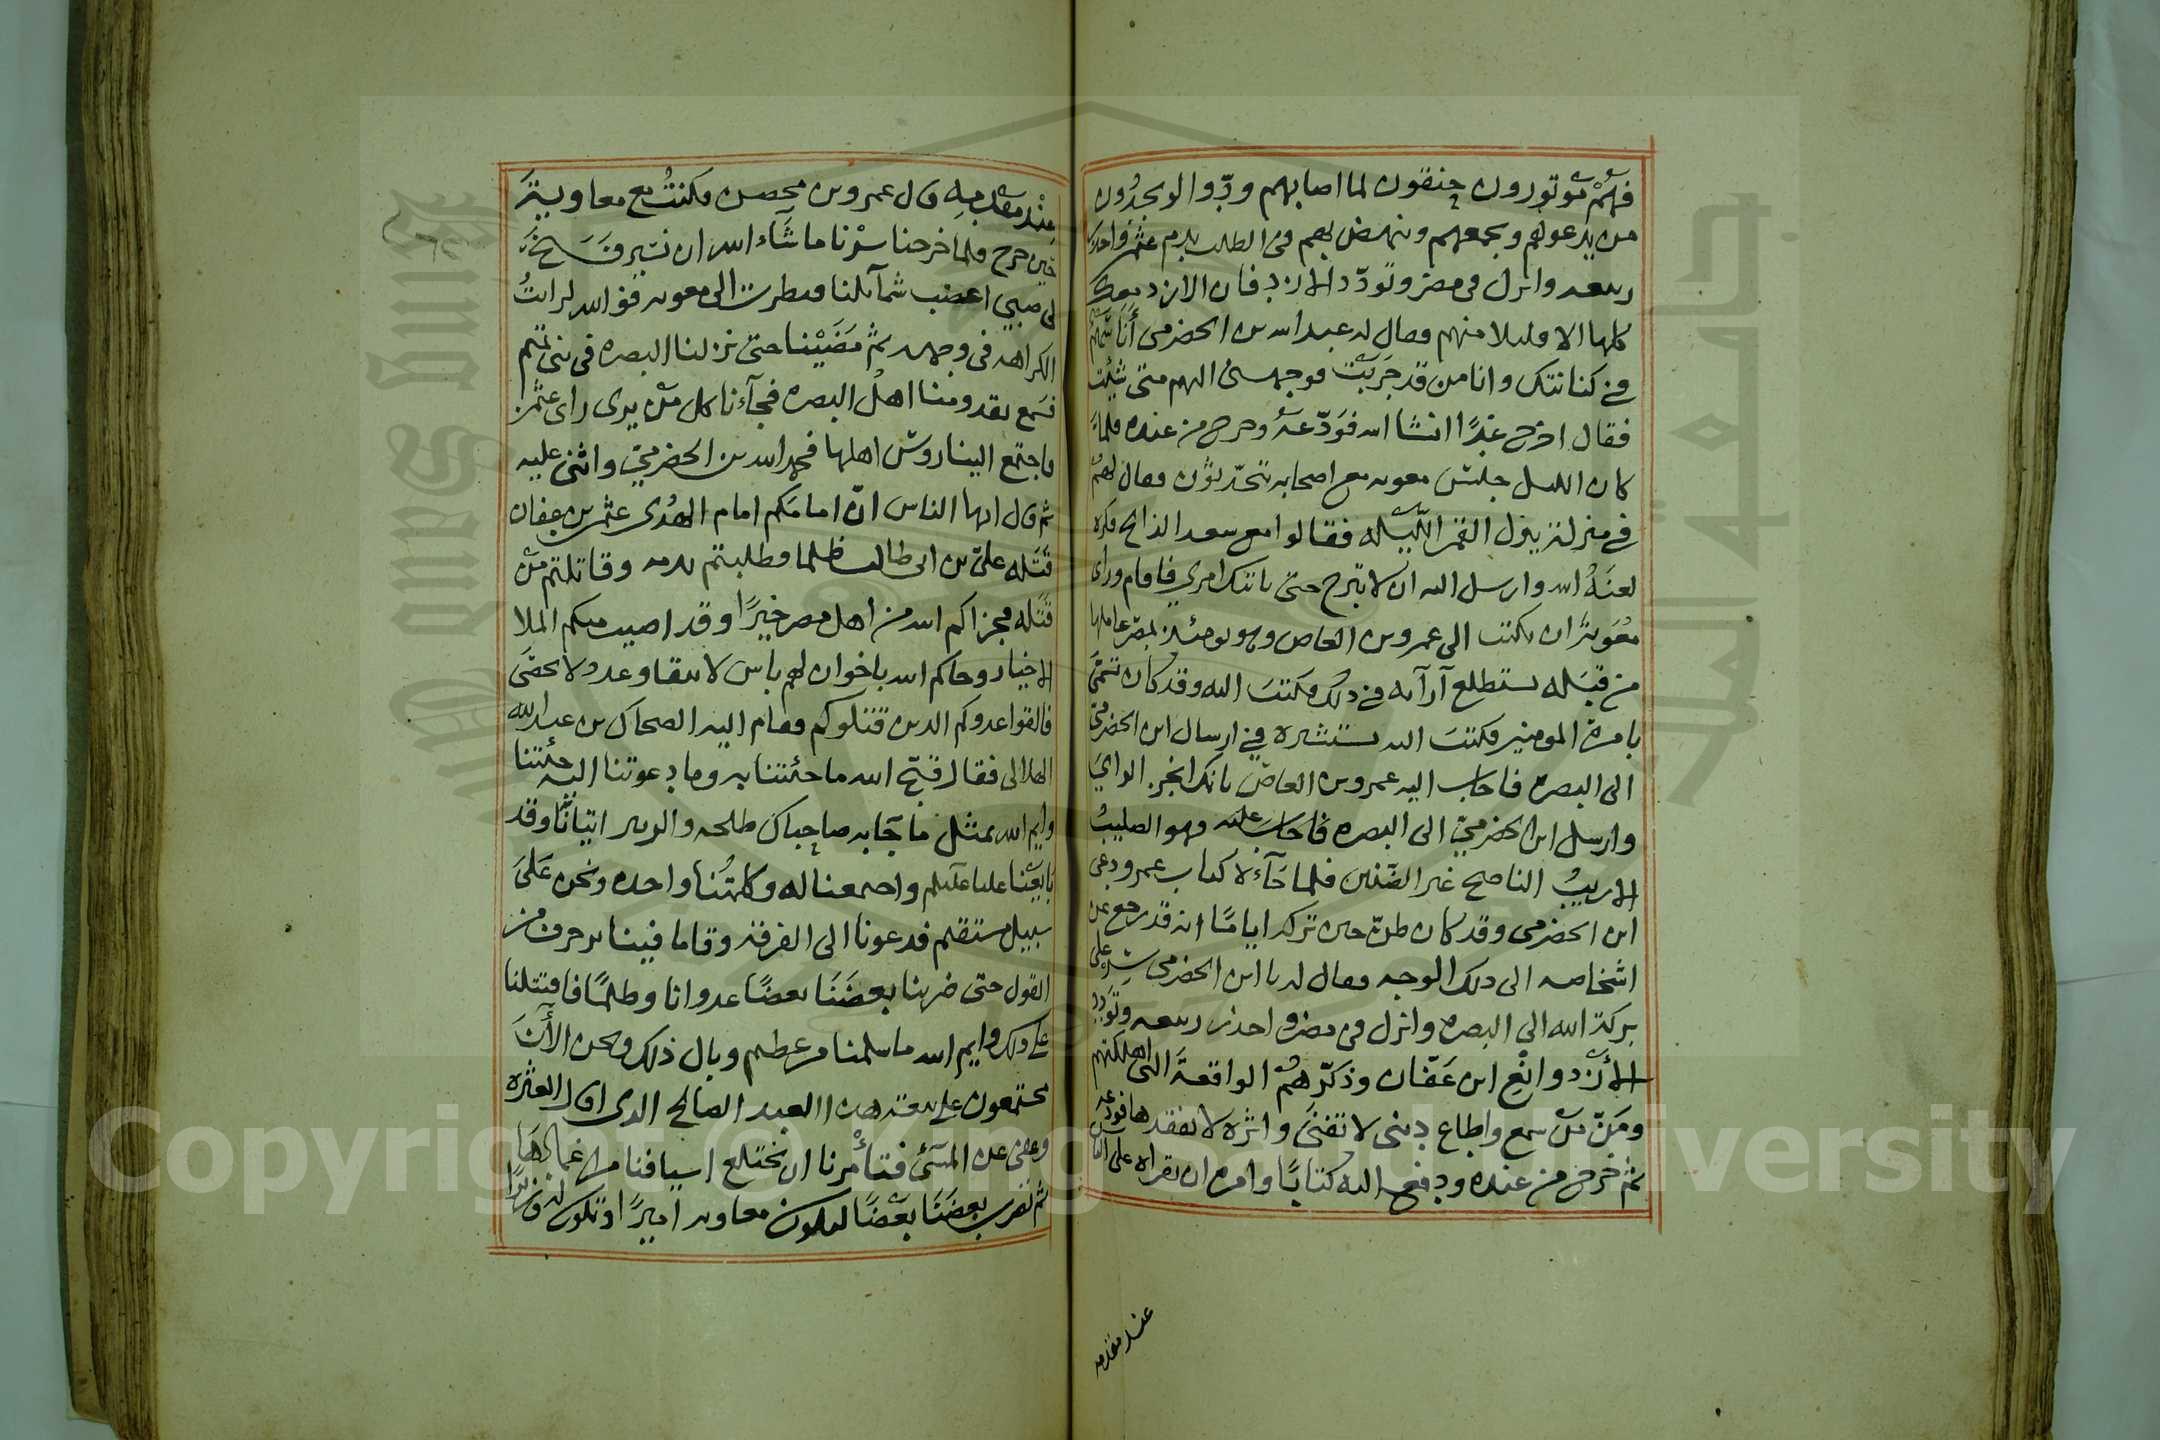 فهم موتورون حنقون لما اصابهم ودّوا لو يجدون
من يدعوهم ويجمعهم وينهض بهم في الطلب بدم عثمن واحذر
ربيعه وانزل في مضر وتودّد الازد فان الازد معك
كلها الا قليلا منهم وقال له عبدالله بن الحضرمي أنا سهم
في كنانتك وانا من قد جربت فوجهني اليهم متى شئت
فقال اخرج غدًا انشا الله فودّعه وخرج من عنده فلما
كان الليل جلس معويه مع اصحابه يتحدثون وقال لهم
في منزلة ينزل القمر الليله فقالوا مع سعد الذابح فكره
لعنه الله وارسل اليه ان لا تبرح حتى ياتيك امري فاقام وراى
معوية ان يكتب الى عمرو بن العاص وهو يومئذ بمصر عاملها
من قبله يستطلع آرآيه في ذلك فكتب اليه وقد كان تسمّى
بامرة المومنين فكتب اليه يستشيره في ارسال ابن الحضرمي
الى البصره فاجاب اليه عمرو بن العاص بانك
وارسل ابن الحضرمي الى البصره فاجاب عليه وهو الصليب
الاريب الناصح غير الضنين فلما جآءه كتاب عمرو دعى
ابن الحضرمي وقد كان ظنّ حين تركه ايامًا انه قد رجع عن
اشخاصه الى ذلك الوجه وقال له يا ابن الحضرمي سر على
بركة الله الى البصره وانزل في مضر واحذر ربيعه وتودد
الأزد وانع ابن عفان وذكّرهم الواقعة التي اهلكتهم
ومنّ من سمع واطاع دنيى لا تفنى واثره لا يفقدها فودعه
ثم خرج من عنده ودفع اليه كتابًا وامره ان يقراه على الناس
عند مقدمه
عند مقدمه قال عمرو بن محصن فكنت مع معاوية
حين خرج فلما خرجنا سرنا ما شآء الله ان نسير فسنح
لي ظبي اعضب شمآيلنا فنظرت الى معويه فوالله لرايت
الكراهه في وجهه ثم مضينا حتى نزلنا البصره في بني تميم
فسمع بقدومنا اهل البصره فجآءنا كل من يرى راى عثمن
فاجتمع الينا روس اهلها فحمد الله بن الحضرمي واثنى عليه
ثم قال ايها الناس انّ امامكم امام الهدى عثمن بن عفان
قتله عليّ بن ابي طالب ظلما فطلبتم بدمه وقاتلتم من
قتله فجزاكم الله من اهل مصر خيرًا وقد اصيب منكم الملا
الاخيار وحاكم الله باخوان لهم باس لا يتقا وعدد لا يحصى
فالقوا عدوكم الذين قتلوكم فقام اليه الضحاك بن عبدالله
الهلالي فقال قبّح الله ما جئتنا به وما دعوتنا اليه جئتنا
وايم الله بمثل ما جآ به صاحباك طلحه والزبير اتيانّا وقد
بايعنا عليا عليلم واجتمعنا له وكلمتنا واحده ونحن على
سبيل مستقيم فدعونا الى الفرقه وقاما فينا بزخرف من
القول حتى ضربنا بعضنا بعضًا عدوانا وظلمًا فاقتتلنا
على ذلك وايم الله ما سلمنا من عظيم وبال ذلك ونحن الآن
مجتمعون على بيعة هذا العبد الصالح الذي اقال العثره
وعفى عن المسئ فتأمرنا ان نختلع اسيافنا من اغمادها
ثم نضرب بعضنا بعضًا ليكون معاويه اميرًا وتكون له وزيرًا